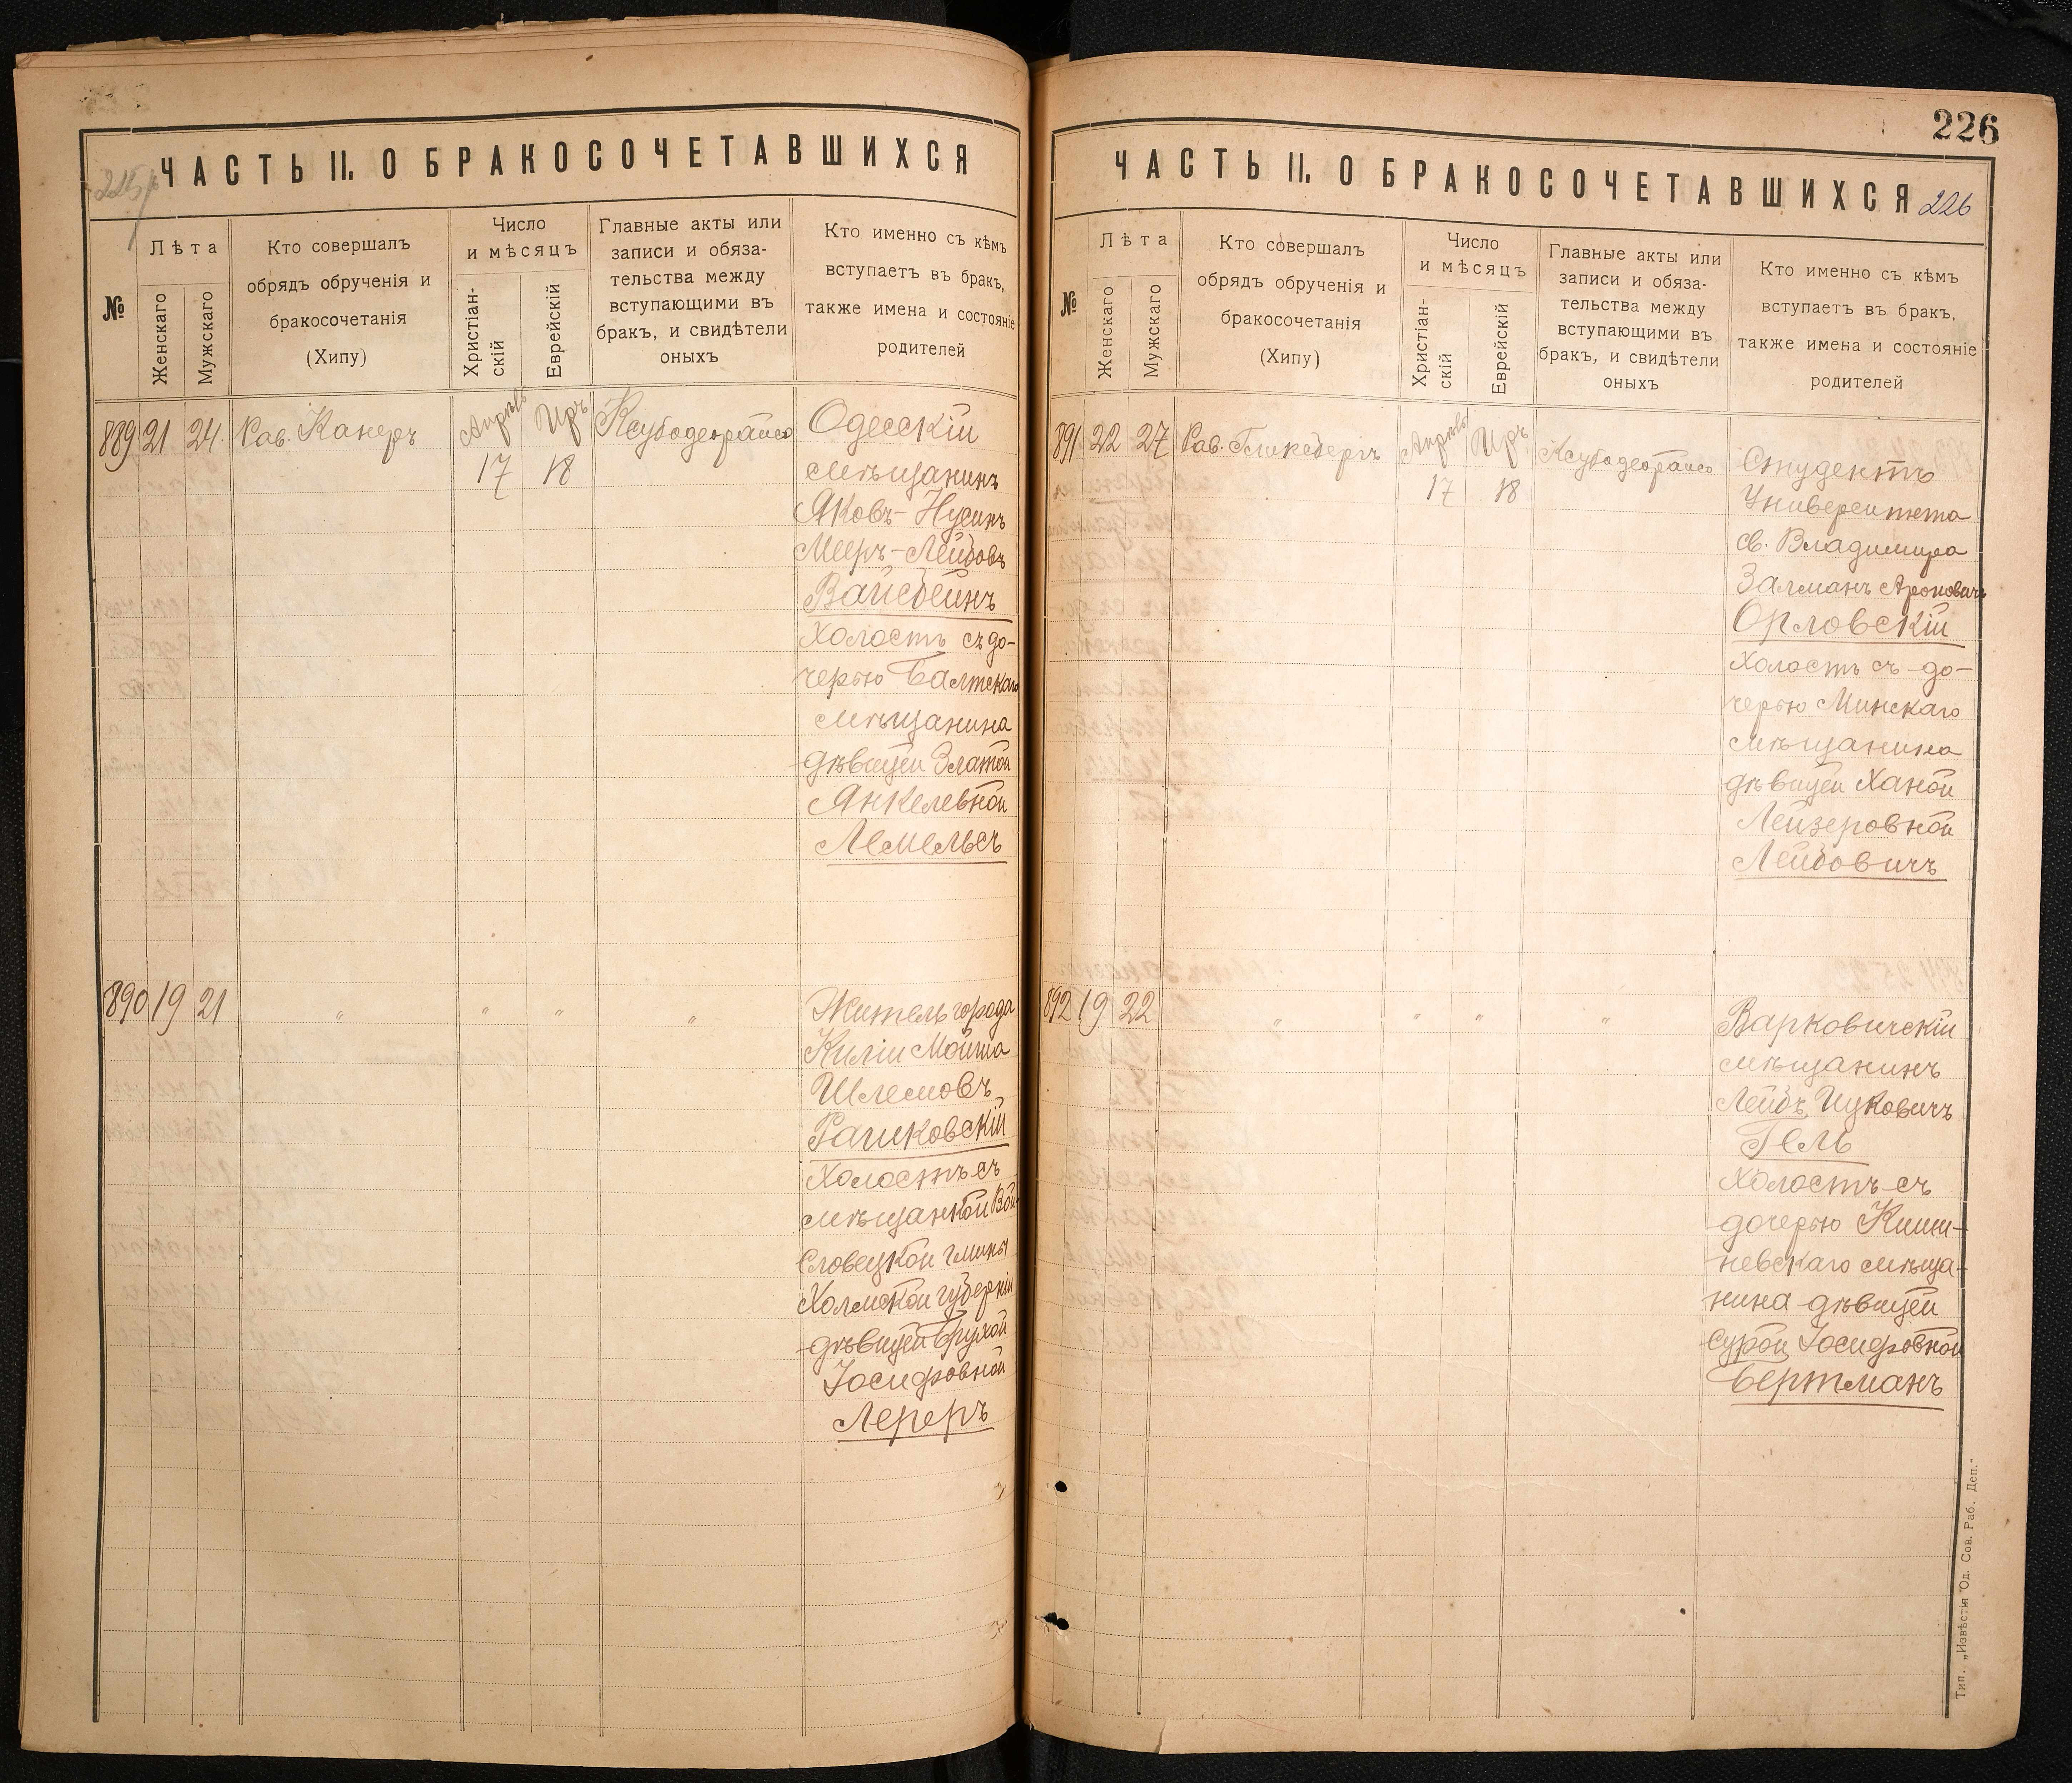 ЧАСТЬ II. О БРАКОСОЧЕТАВШИХСЯ
№
Лѣта
Женскаго
Мужскаго
Кто совершалъ
обрядъ обрученія и
бракосочетанія
(Хипу)
Число
и мѣсяцъ
Христіан-
скій
Еврейскій
Главные акты или
записи и обяза-
тельства между
вступающими въ
бракъ, и свидѣтели
оныхъ
Кто именно съ кѣмъ
вступаетъ въ бракъ,
также имена и состояніе
родителей
889 21 24 Рав. Канеръ Апрѣль Иръ
17 18
Одесскій
мѣщанинъ
Яковъ-Нусинъ
Меер-Лейбовъ
Вайсбейнъ
Холостъ съ до-
черью Балтскаго
мѣщанина
дѣвицей Златой
Янкелевной
Лемельсъ
890 19 21 " " " "
Житель города
Киліи Мойша
Шлемовъ
Рашковскій
Холостъ съ
мѣщанкой Вой-
словецкой гмины
Холмской губерніи
дѣвицей Брухой
Іосифовной
Лереръ
226
ЧАСТЬ II. О БРАКОСОЧЕТАВШИХСЯ 226
№
Лѣта
Женскаго
Мужскаго
Кто совершалъ
обрядъ обрученія и
бракосочетанія
(Хипу)
Число
и мѣсяцъ
Христіан-
скій
Еврейскій
Главные акты или
записи и обяза-
тельства между
вступающими въ
бракъ, и свидѣтели
оныхъ
Кто именно съ кѣмъ
вступаетъ въ бракъ,
также имена и состояніе
родителей
891 22 27 Рав. Гликсбергъ Апрѣль Иръ
17 18
Студентъ
Университета
св. Владимира
Залманъ Ароновичъ
Орловскій
Холостъ съ до-
черью Минскаго
мѣщанина
дѣвицей Ханой
Лейзеровной
Лейбовичъ
892 19 22 " " " "
Варковичскій
мѣщанинъ
Лейбъ Ицковичъ
Гель
Холостъ съ
дочерью Киши-
невскаго мѣща-
нина дѣвицей
Сурой Іосифовной
Бертманъ
Тип. „Извѣстія Од. Сов. Раб. Деп."